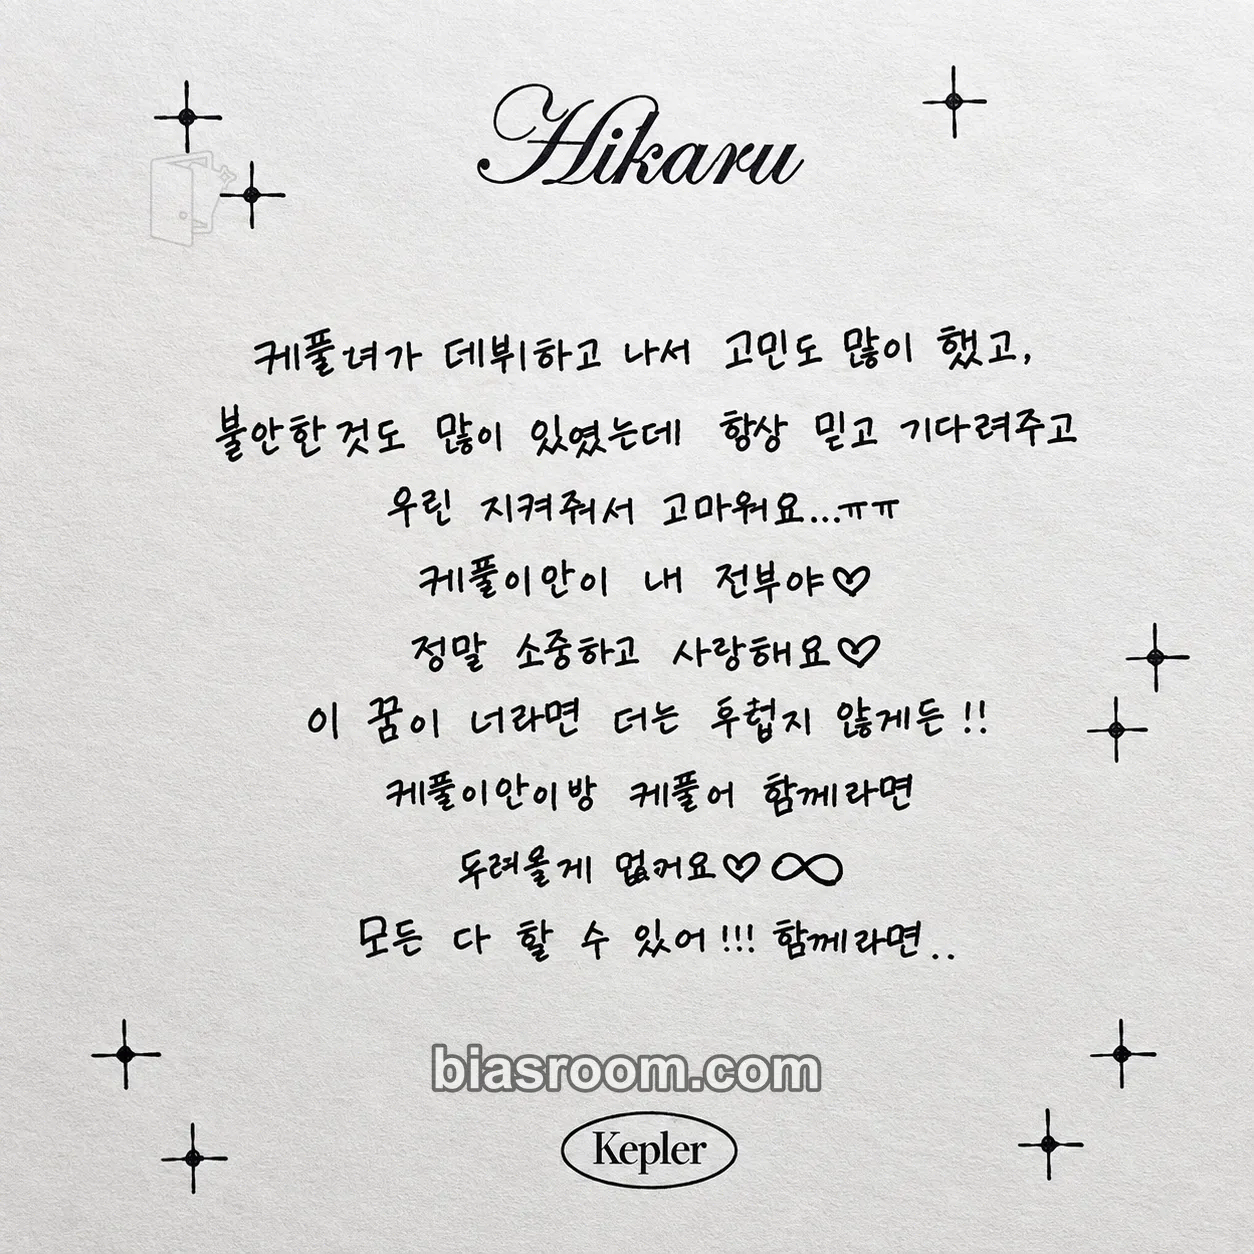 Hikaru
케플러가 데뷔하고 나서 고민도 많이 했고,
불안한것도 많이 있었는데 항상 믿고 기다려주고
우린 지켜줘서 고마워요...ㅠㅠ
케플이안이 내 전부야♡
정말 소중하고 사랑해요♡
이 꿈이 너라면 더는 후헙지 않게든!!
케플이안이방 케플어 함께라면
두려울게 없거요♡∞
모든 다 할 수 있어!!! 함께라면..
biasroom.com
Kepler